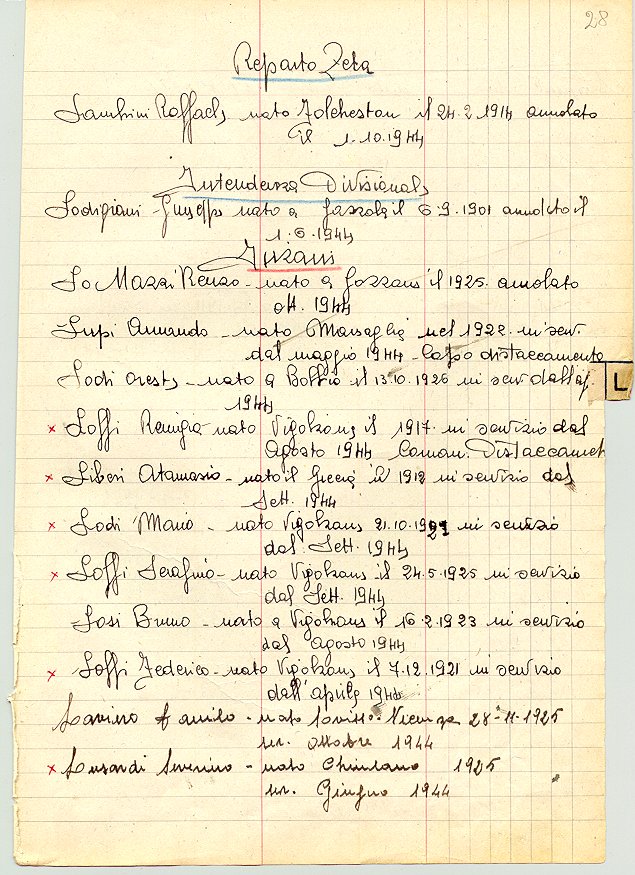 28
Reparto Zeta
Lambrini Raffaele nato Folchestan il 24.2.1914 arruolato
il 1.10.1944
Intendenza Divisionale
Lodigiani Giuseppe nato a Gazzola il 6.9.1901 arruolato il
1.6.1944
Lo Mazzi Renzo - nato a Gozzano il 1925. arruolato
ott. 1944
Lupi Armando - nato nel 1922. in serv.
dal maggio 1944 - Capo distaccamento
Lodi Oreste - nato a Bobbio il 13.10.1926 in serv dall'
1944
L
x Loffi Remigia - nato Vigolzone il 1917. in servizio dal
Agosto 1944 Coman. Distaccament
x Liberi Atamasio - nato il Grecia il 1912 in servizio dal
Sett. 1944
x Lodi Mario - nato Vigolzone 21.10.1921 in servizio
dal Sett. 1944
x Loffi Serafino - nato Vigolzone il 24.5.1925 in servizio
dal Sett. 1944
Losi Bruno - nato a Vigolzone il 16.2.1923 in servizio
dal Agosto 1944
x Loffi Federico - nato Vigolzone il 7.12.1921 in servizio
dall'aprile 1944
Lavino Camilo - nato Vicenza 28-11-1925
ser. ottobre 1944
x Lusardi Severino - nato 1925
ser. Giugno 1944